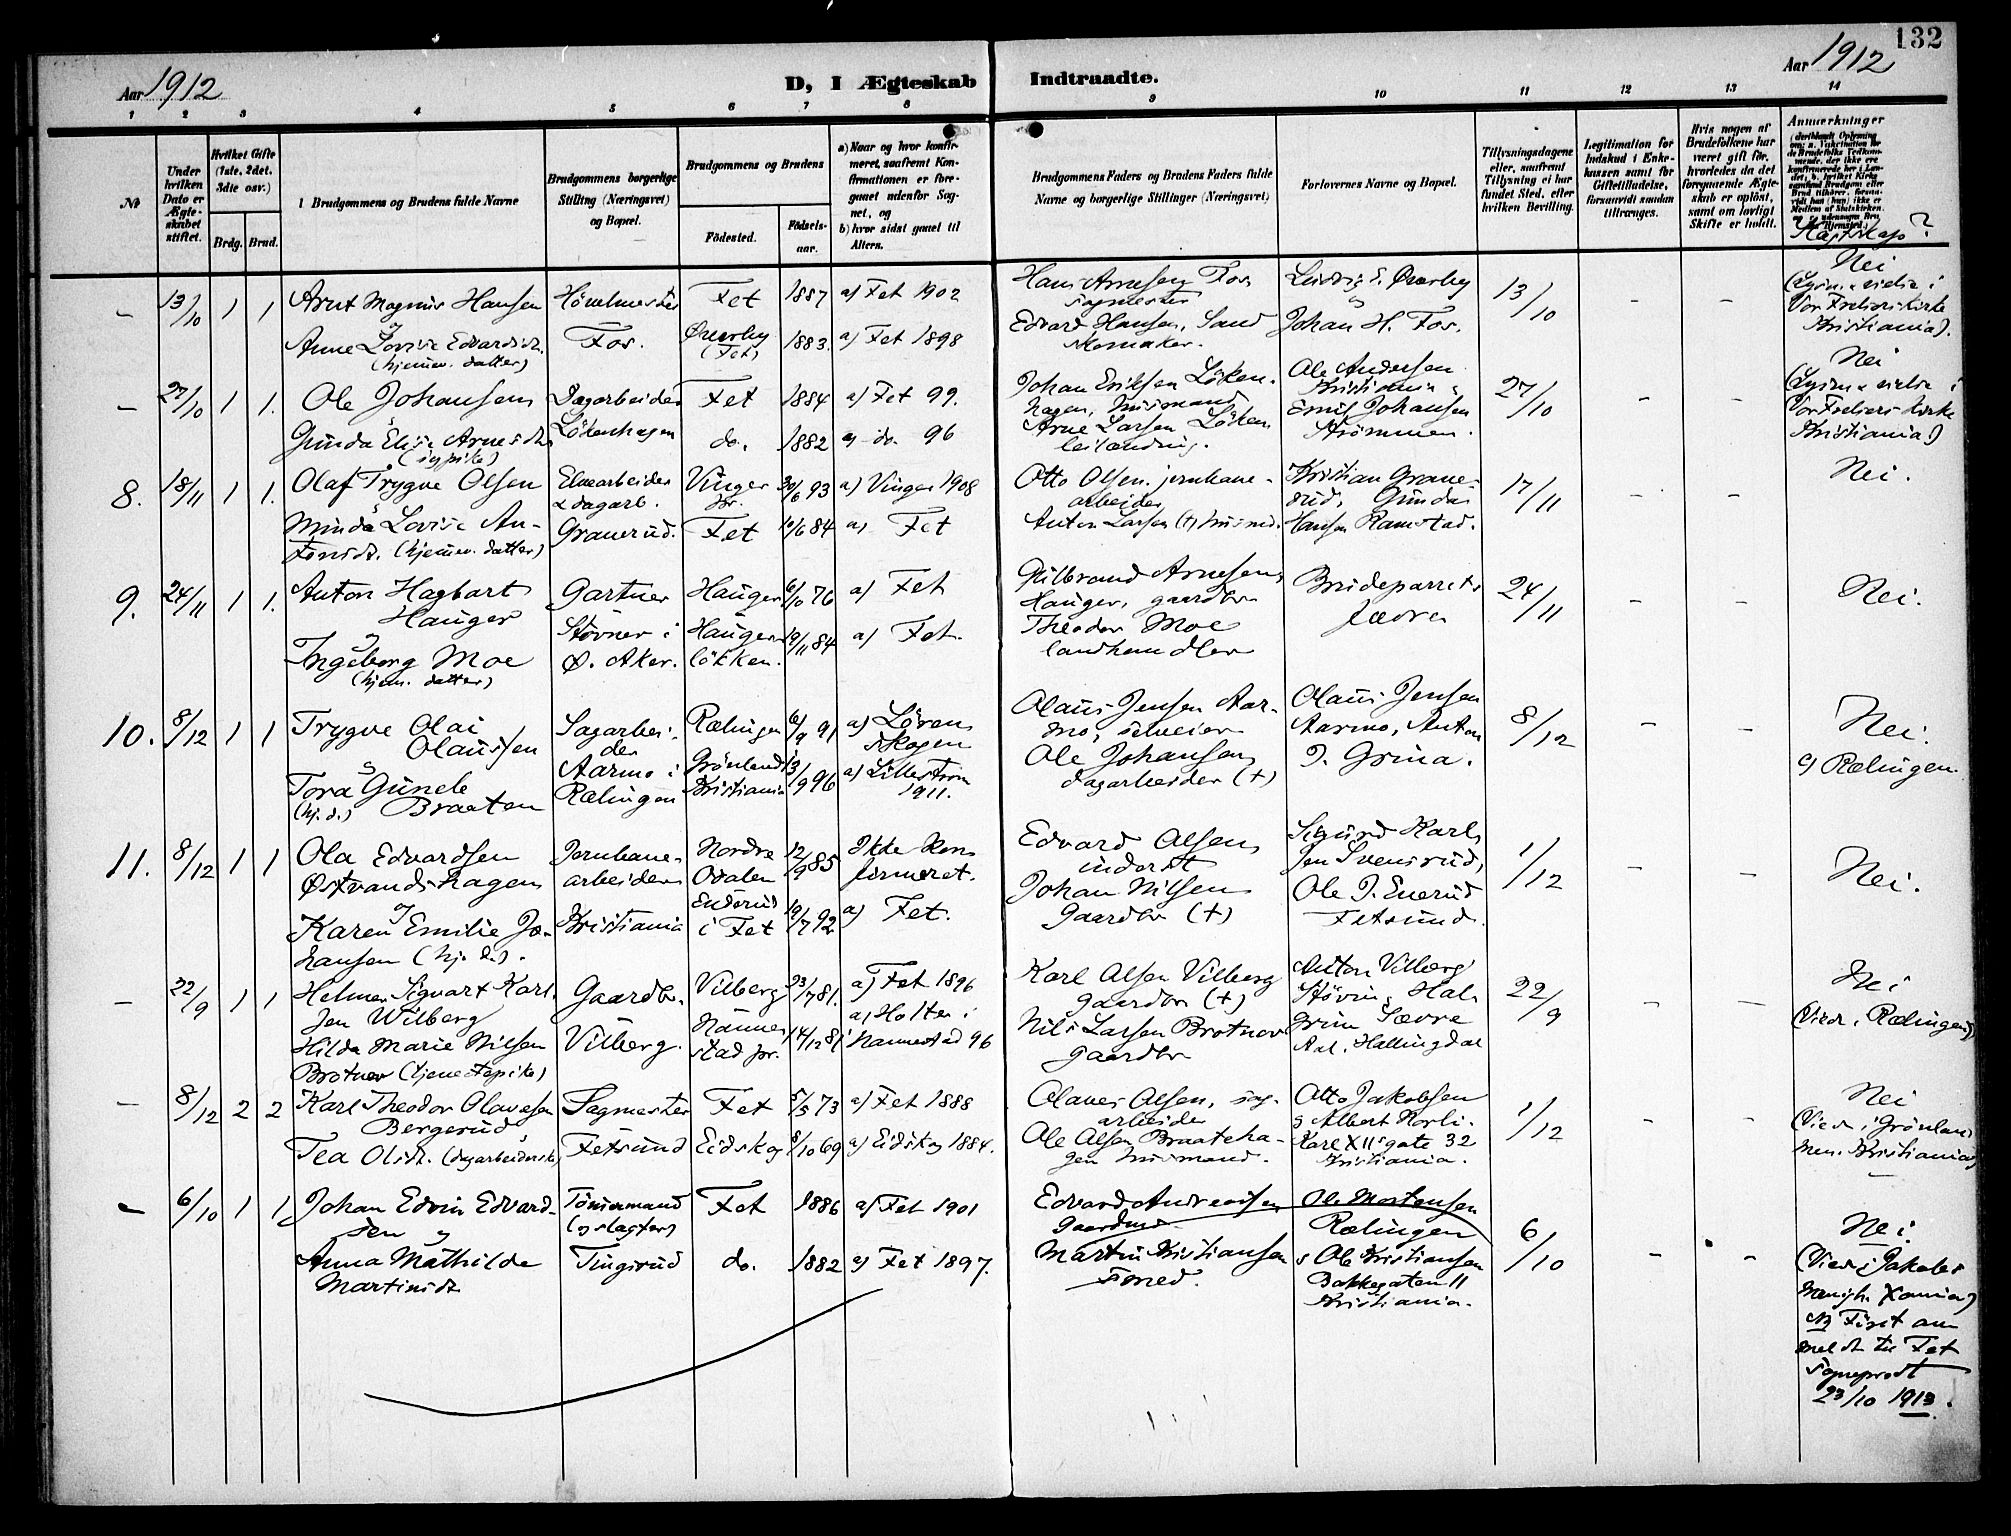 132
Aar 1912
D, I Ægteskab Indtraadte.
Aar 1912
1 2 3 4 5 6 7 8 9 10 11 12 13 14
№
Under hvilken Dato er Ægteskabet stiftet.
Hvilket Gifte (1ste, 2det, 3die osv.)
Brdg. Brud.
Brudgommens og Brudens fulde Navne
Brudgommens borgerlige Stilling (Næringsvei) og Bopæl.
Brudgommens og Brudens
Fødested.
Fødselsaar.
a) Naar og hvor konfirmeret, saafremt Konfirmationen er foregaaet udenfor Sognet, og
b) hvor sidst gaaet til Alters.
Brudgommens Faders og Brudens Faders fulde Navne og borgerlige Stillinger (Næringsvei)
Forlovernes Navne og Bopæl.
Tillysningsdagene eller, saafremt Tillysning ei har fundet Sted, efter hvilken Bevilling.
Legitimation for Indskud i Enkekassen samt for Giftetilladelse, forsaavidt saadan tiltrænges.
Hvis nogen af Brudefolkene har været gift før, hvorledes da det foregaaende Ægteskab er opløst, samt om lovligt Skifte er holdt.
Anmerkninger
Slægtskap?
– 13/10 1 1 Arnt Magnus Hansen Høvelmester Fet 1887 a) Fet 1902 Hans Arnesen Fos, Ludvig E. Øverby 13/10 – – Nei
sagmester (Lysn. & vielse i
og Anne Lovise Edvardsdt. Fos. Øverby (Fet) 1883. a) Fet 1898 Edvard Hansen, Sand Johan H. Fos. Vor Frelsers Kirke
(hjemmev. datter) skomaker. Kristiania).
– 27/10 1 1. Ole Johansen Dagarbeider Fet 1884 a) Fet 99. Johan Eriksen Løken- Ole Andersen 27/10 – – Nei
hagen, husmand Kristiania & (Lysn. & vielse i
Gunda Elise Arnesdt. Løkenhagen do. 1882 a) do. 96 Arne Larsen Løken Emil Johansen Vor Frelsers Kirke
(sypike) leilænding. Strømmen. Kristiania)
8. 18/11 1 1. Olaf Trygve Olsen Elvearbeider Vinger 30/6 93 a) Vinger 1908 Otto Olsen, jernbane- Kristian Graue- 17/11 – – Nei.
& dagarb. pr. arbeider rud, Gunder
Minda Lovise An- Grauerud. Fet 10/6 84 a) Fet Anton Larsen (+) husmd. Hansen Ramstad.
tonsdt. (hjemmev. datter)
9. 24/11 1 1. Anton Hagbart Gartner Hauger 6/10 76 a) Fet Hilbrand Arnesen Brudeparrets 24/11 – – Nei.
Hauger Støvner i Hauger- Hauger, gaardbr. fædre
Ingeborg Moe Ø. Aker. løkken. 19/11 84 a) Fet. Theodor Moe
(hjem. datter) landhandler
10. 8/12 1 1 Trygve Olai Sagarbei- Rælingen 6/9 91 a) Løren- Olaus Jensen Aar- Olaus Jensen 8/12 – – Nei.
Olaussen der skogen mo, selveier Aarmo, Anton
Tora Gunele Aarmo i Grønland 13/9 96 a) Lillestrøm Ole Johansen J. Grina. Rælingen.
(hj. d.) Braaten Rælingen Kristiania 1911. dagarbeider (+)
11. 8/12 1 1 Ola Edvardsen Jernbane- Nordre 12/9 85 Ikke kon- Edvard Olsen Sigurd Karl- 1/12 – – Nei.
Østvandshagen arbeider Odalen firmeret. inderst sen Svensrud,
og Karen Emilie Jo- Kristiania i Fet 19/7 92 a) Fet. Johan Nilsen Ole J. Enerud
hansen (hj. d.). Gaardbr (+) Fetsund.
– 22/9 1 1 Helmer Sigvart Karl- Gaardbr. Vilberg 23/7 81. a) Fet 1896 Karl Olsen Vilberg Anton Vilberg 22/9 – – Nei
sen Wilberg gaardbr (+) (Viede i Rælingen)
Hilda Marie Nilsen Vilberg. Nannestad pr. 14/12 81 a) Holter i Nils Larsen Brotner
Brotner (tjenestepike) Nannestad 96 gaardbr Aal. Hallingdal
– 8/12 2 2 Karl Theodor Olavesen Sagmester Fet 5/5 73 a) Fet 1888 Olaves Olsen, sag- Otto Jakobsen 1/12 – – Nei
Bergerud, arbeider & Albert Horli. (Viede i Grønland
Tea Olsdt. (dagarbeiderske) Fetsund Eidskog 8/10 69 a) Eidskog 1884. Ole Olsen Braateha- Karl XIIs gate 32 men. Kristiania)
gen husmand. Kristiania.
– 6/10 1 1 Johan Edvin Edvard- Tømmermand Fet 1886 a) Fet 1901 Edvard Andreassen Ole Mortensen 6/10 – – Nei.
sen og (og slagter) Rælingen (Viede i Jakobs
Anna Mathilde Tingsrud do. 1882 a) Fet 1897. Martin Kristiansen & Ole Kristiansen menigh. Xania)
Martinsdt smed. Bakkegaten 11 NB Først an-
Kristiania. meldt til Fet
sogneprest
23/10 1913.